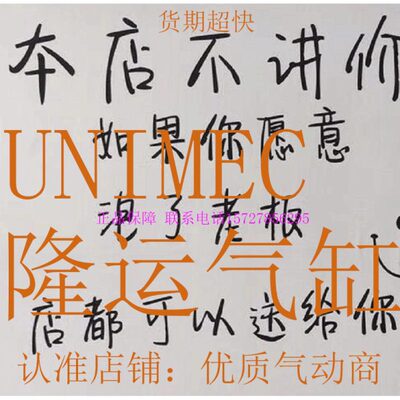 货期超快
本店不讲价
如果你愿意
UNIMEC
泡了老板
正品保障 联系电话
隆运气缸
店都可以送给你
认准店铺：优质气动商